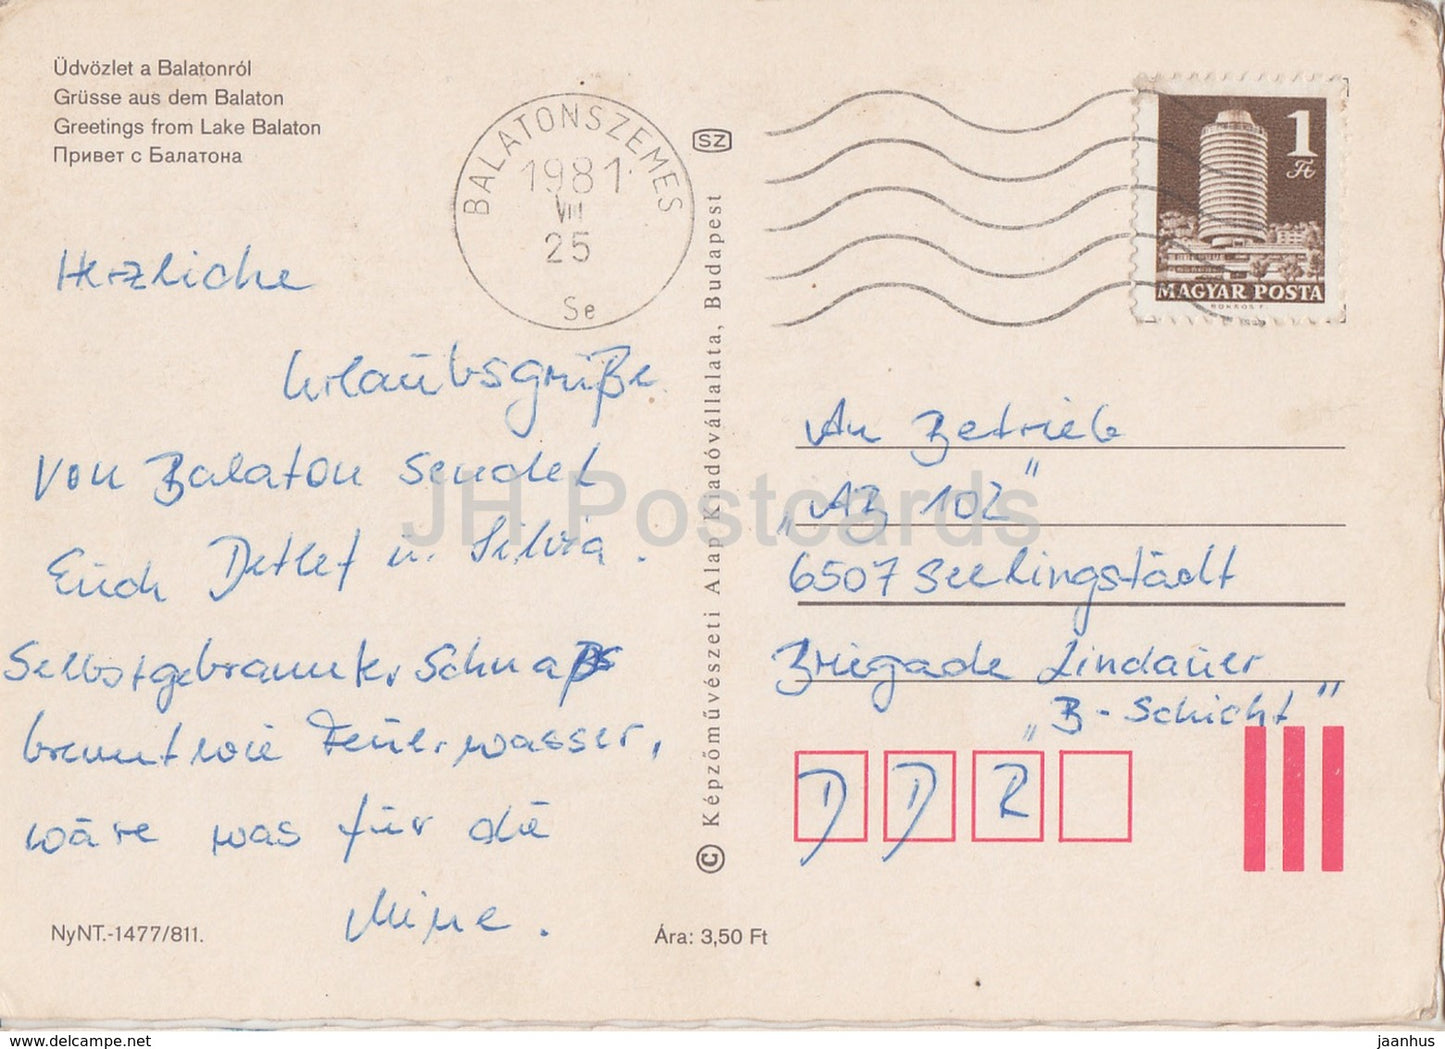 Üdvözlet a Balatonról
Grüsse aus dem Balaton
Greetings from Lake Balaton
Привет с Балатона
BALATONSZEMES
1981
VII
25
Se
SZ
1
Ft
MAGYAR POSTA
Herzliche
Urlaubsgrüße
von Balaton sendet
Euch Detlef u. Silvia.
Selbstgebrannter Schnaps
brennt wie Feuerwasser,
wäre was für die
Mine.
An Betrieb
„AB 102"
6507 Seelingstädt
Brigade Lindauer
„B-Schicht"
D D R
© Képzőművészeti Alap Kiadóvállalata, Budapest
NyNT.-1477/811.
Ára: 3,50 Ft
JH Postcards
www.delcampe.net
jaanhus